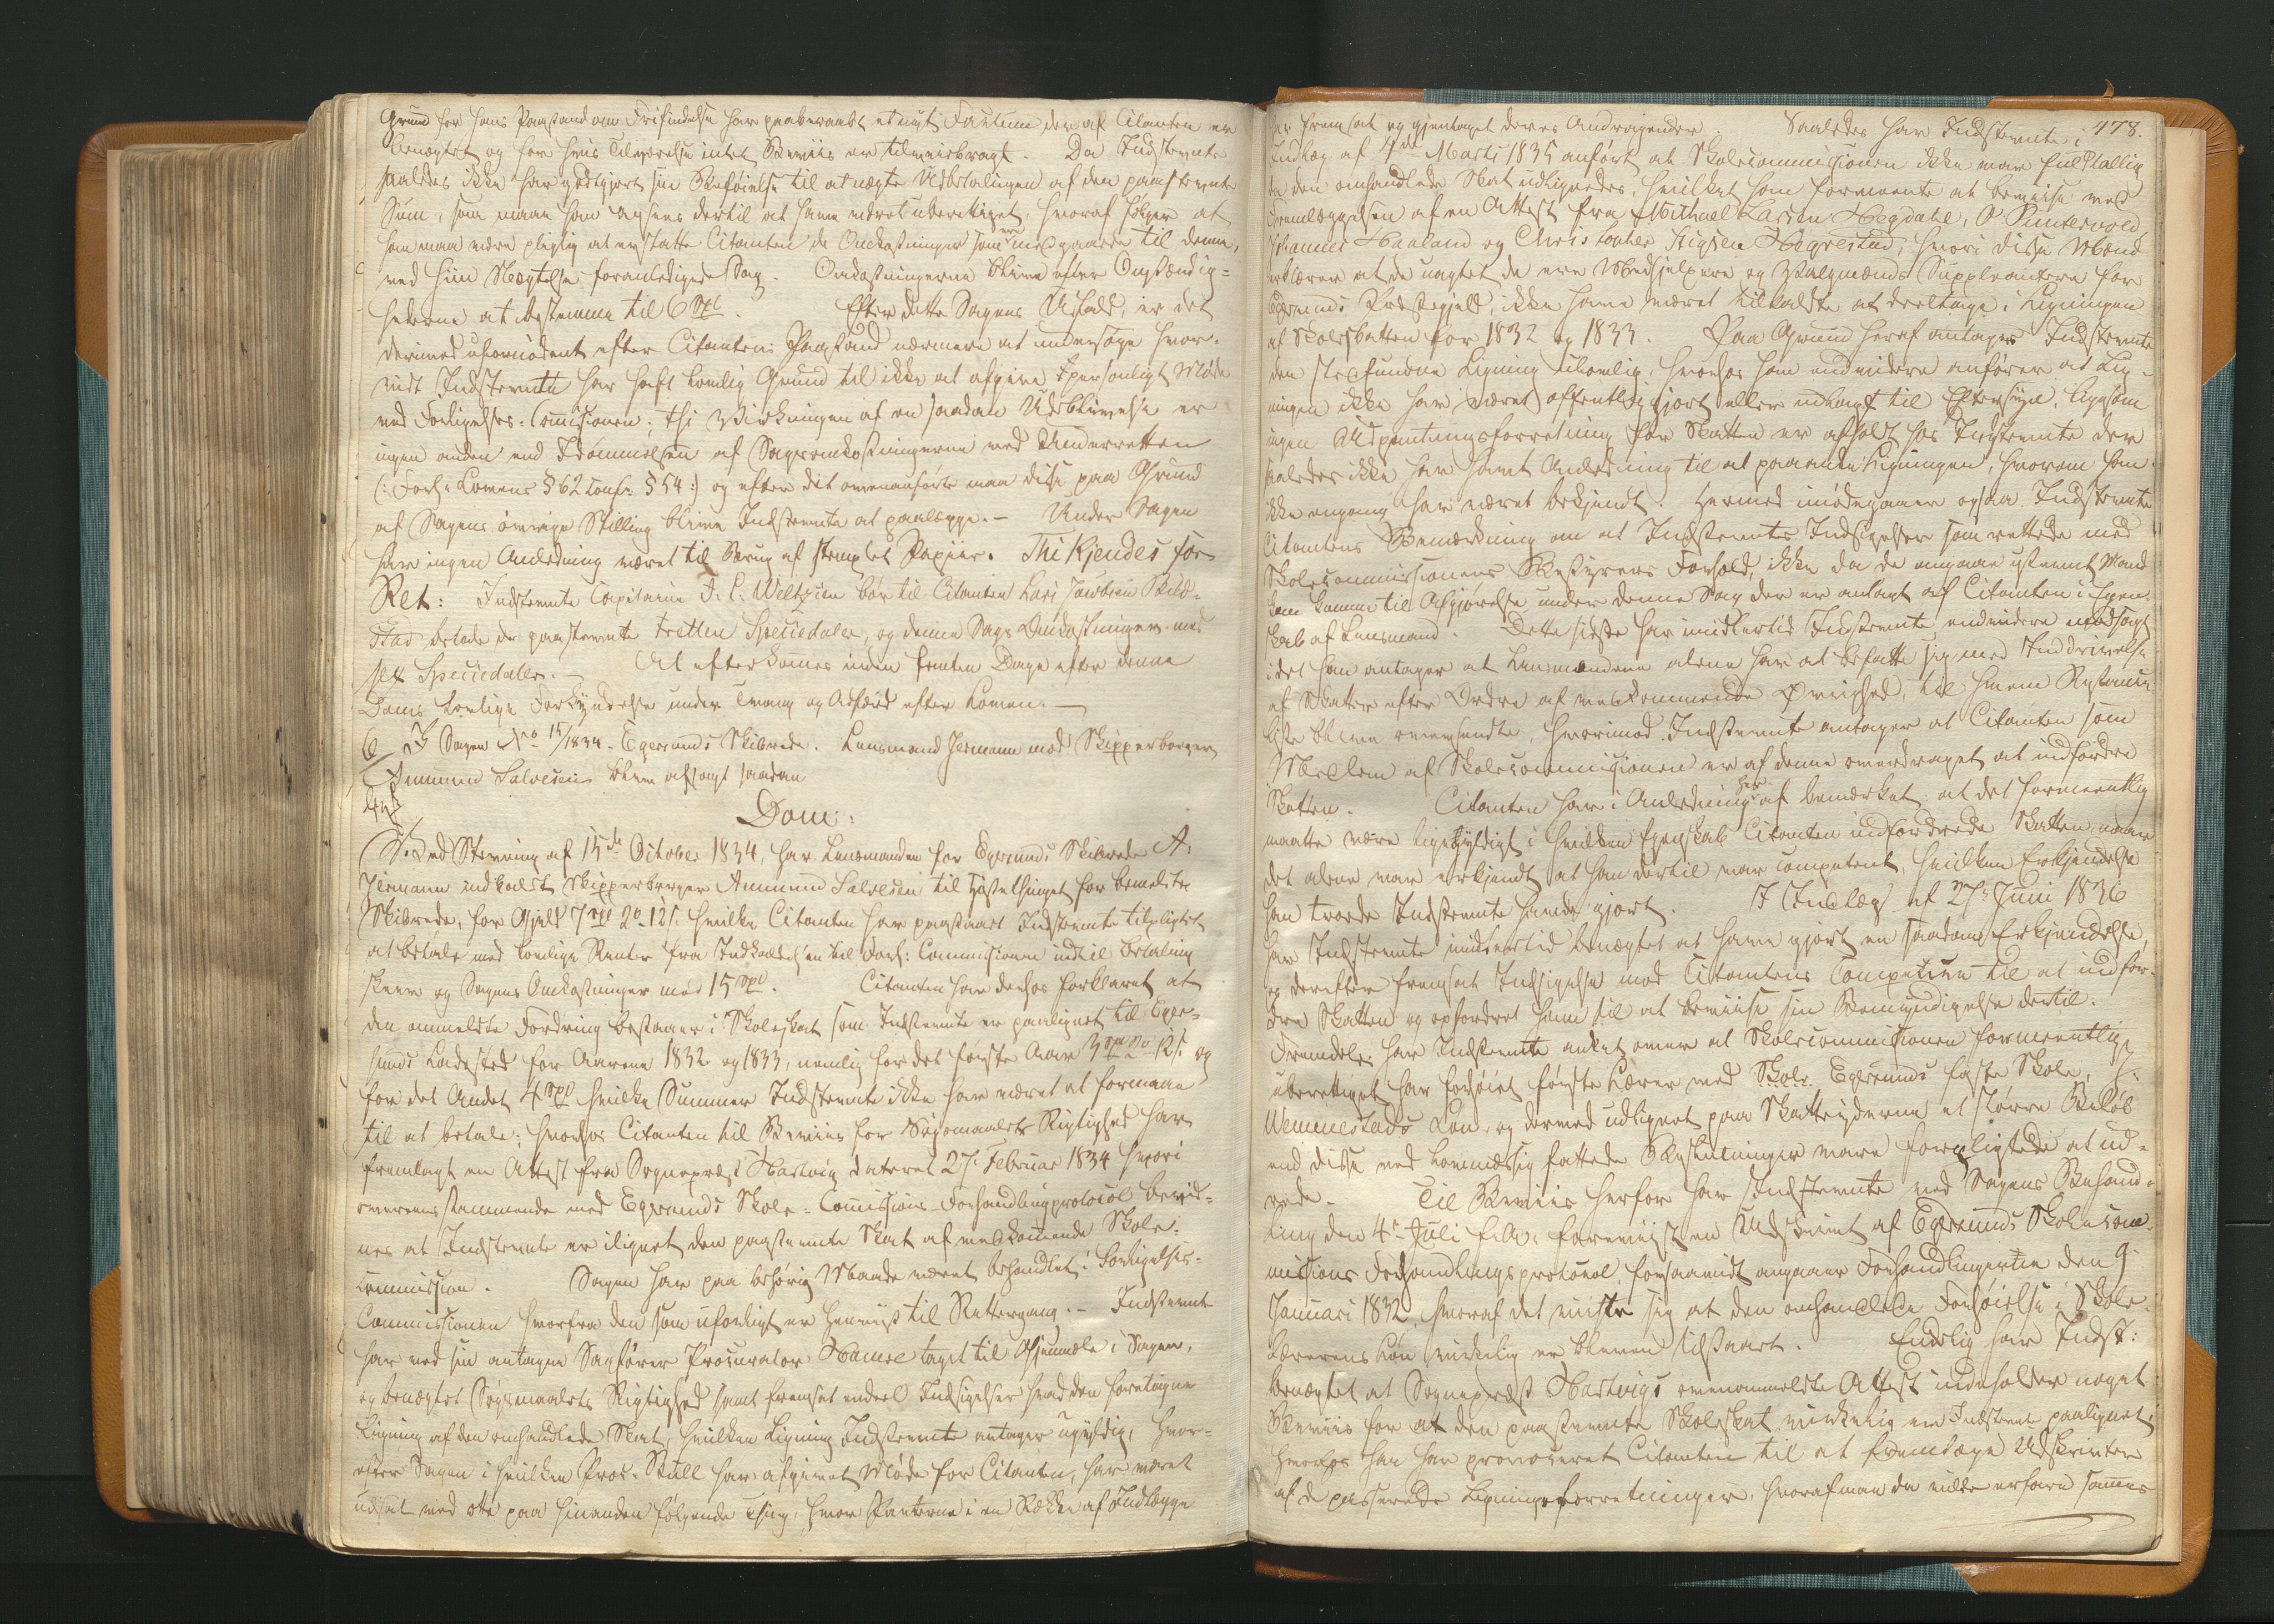 Grund for hans Paastand om Frifindelse har paaberaabt et nyt Factum der af Citanten er
benægtet og for hvis Tilværelse intet Beviis er tilveiebragt. Da Indstevnte
saaledes ikke har godtgjort sin Beføielse til at nægte Udbetalingen af den paastevnte
Sum, saa maae han agsees dertil at have været uberettiget, hvoraf følger at
han maa være pligtig at erstatte Citanten de Omkostninger som ere medgaaede til denne,
ved hiin Nægtelse foranledigede Sag. Omkostningerne blive efter Omstændig=
hederne at bestemme til 6 Spd. Efter dette Sagens Udfald, er det
derimod ufornødent efter Citantens Paastand nærmere at undersøge hvor-
vidt Indstevnte har havt lovlig Grund til ikke at afgive personligt Møde
ved Forligelses-Comissionen, thi Virkningen af en saadan Udeblivelse er
ingen anden end Idømmelsen af Sagsomkostningerne ved Underretten
(: Forl: Lovens § 62 conf: § 54 :) og efter det ovenanførte maa disse paa Grund
af Sagens øvrige Stilling blive Indstevnte at paalægge. – Under Sagen
har ingen Anledning været til Brug af stemplet Papiir. Thi Kjendes for
Ret: Indstevnte Capitaine J. C. Weltzien bør til Citanten Lars Jacobsen
stad betale de paastevnte tretten Speciedaler, og denne Sags Omkostninger med
sex Speciedaler. – At efterkommes inden femten Dage efter denne
Doms lovlige Forkyndelse under Tvang og Adfærd efter Loven. –
6/ I Sagen No 15/1834. Egersunds Skibrede. Lensmand Jermann mod Skipperborger
Ammund Salvesen blev afsagt saadan
Dom:
Ved Stevning af 15de October 1834, har Lensmanden for Egersunds Skibrede A.
Jermann indkaldt Skipperborger Ammund Salvesen til Høstethinget for bemeldte
Skibrede, for Gjeld 7 Spd 2 o 12 s. hvilke Citanten har paastaaet Indstevnte tilpligtet
at betale med lovlige Renter fra Indkaldelsen til Forl: Commissionen indtil Betaling
skeer og Sagens Omkostninger med 15 Spd. Citanten har derhos forklaret at
den ommeldte Fordring bestaaer i Skoleskat som Indstevnte er paalignet til Eger=
sunds Ladested for Aarene 1832 og 1833, nemlig for det første Aar 3 Spd 2 o 12 s. og
for det Andet 4 Spd hvilke Summer Indstevnte ikke har været at formaae
til at betale; hvorhos Citanten til Beviis for Søgsmaalets Rigtighed har
fremlagt en Attest fra Sognepræst Hartvig dateret 27. Februar 1834 hvori
overensstemmende med Egersunds Skole=Comissions-Forhandlingsprotocol bevid=
nes at Indstevnte er ilignet den paastevnte Skat af vedkomende Skole-
commission. Sagen har paa behørig Maade været behandlet i Forligelses-
Commissionen hvorfra den som uforligt er henviist til Rettergang. – Indstevnte
har ved sin antagne Sagfører Procurator Hamre taget til Gjenmæle i Sagen,
og benægtet Søgsmaalets Rigtighed samt fremsat endeel Indsigelser mod den foretagne
Ligning af den omhandlede Skat, hvilken Ligning Indstevnte antager ugyldig, hvor-
efter Sagen i hvilken Proc. Krull har afgivet Møde for Citanten, har været
udsat ved otte paa hinanden følgende Thing, hvor Parterne i en Række af Indlægge
478.
har fremsat og gjentaget deres Andragender. Saaledes har Indstevnte i
Indlæg af 4de Marts 1835 anført at Skolecommissionen ikke var fuldtallig
da den omhandlede Skat udlignedes, hvilket han formente at bevise ved
Fremlæggelsen af en Attest fra Michael Larsen Hegdahl, P. Puntervold,
Johannes Haaland og Christopher Stigsen Hegrestad, hvori disse Mænd
erklærer at de uagtet de ere Medhjelpere og Valgmænds Suppleantere for
Egersunds Præstegjeld, ikke have været tilkaldte at deeltage i Ligningen
af Skoleskatten for 1832 og 1833. Paa Grund heraf antager Indstevnte
den stedfundne Ligning ulovlig, hvorhos han endvidere anfører at Lig-
ningen ikke har været offentliggjort eller udlagt til Eftersyn, ligesom
ingen Udpantningsforretning for Skatten er afholdt hos Indstevnte der
saaledes ikke har havt Anledning til at paaanke Ligningen, hvorom han
ikke engang har været bekjendt. Hermed imødegaaer ogsaa Indstevnte
Citantens Bemærkning om at Indstevntes Indsigelser som rettede mod
Skolecommissionens Bestyrers Forhold, ikke da de angaae ustevnt Mand
kan komme til Afgjørelse under denne Sag der er anlagt af Citanten i Egen-
skab af Lensmand. Dette sidste har imidlertid Indstevnte endvidere modsagt
idet han antager at Lensmændene alene har at befatte sig med Inddrivelse
af Skatter efter Ordre af vedkommende Øvrighed, til hvem Restance
liste bliver oversendte, hvorimod Indstevnte antager at Citanten som
Medlem af Skolecommissionen er af denne overdraget at indfordre
Skatten. Citanten har i Anledning her af bemærket at det formeentlig
maatte være ligegyldigt i hvilken Egenskab Citanten indfordrede Skatten, naar
det alene var erkjendt at han dertil var competent, hvilken Erkjendelse
han troede Indstevnte havde gjort. I Indlæg af 27de Juni 1836
har Indstevnte imidlertid benægtet at have gjort en saadan Erkjendelse,
og derefter fremsat Indsigelse mod Citantens Competence til at indfor-
dre Skatten og opfordret ham til at bevise sin Bemyndigelse dertil.
Fremdeles har Indstevnte anket over at Skolecommissionen formeentlig
uberettiget har forhøiet første Lærer ved Skole Egersunds faste Skole,
Wemmestads Løn, og dermed udlignet paa Skatteyderne et større Beløb
end disse ved lovmæssig fattede Beslutninger vare forpligtede at ud-
rede. – Til Beviis herfor har Indstevnte ved Sagens Behand-
ling den 4de Juli f. A. foreviist en Udskrivt af Egersunds Skolecom-
missions Forhandlingsprotocol, forsaavidt angaaer Forhandlingerne den 9
Januari 1832, hvoraf det viiste sig at den omhandlede Forhøielse i Skole-
lærerens Løn virkelig er bleven tilstaaet. Endelig har Indst:
benægtet at Sognepræst Hartvigs ovenommeldte Attest indeholder noget
Beviis for at den paastevnte Skoleskat virkelig er Indstevnte paalignet,
hvorhos han har provoceret Citanten til at fremlægge Udskrivter
af de passerede Ligningsforretninger, hvoraf man da vilde erfare sammes